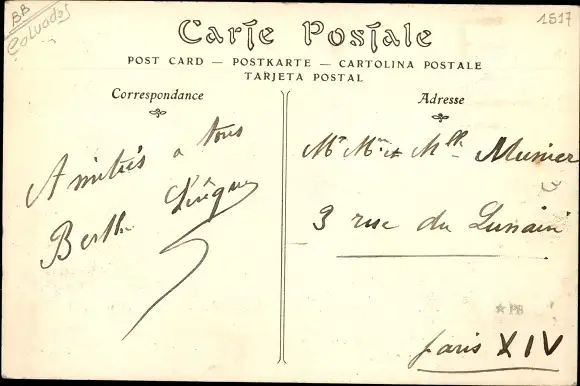 BB
Calvados
1517
Carte Postale
POST CARD — POSTKARTE — CARTOLINA POSTALE
TARJETA POSTAL
Correspondance
Adresse
Amitiés a tous
Berthe
Mr Mme et Mlle Munier
3 rue du Lunain
PB
Paris XIV